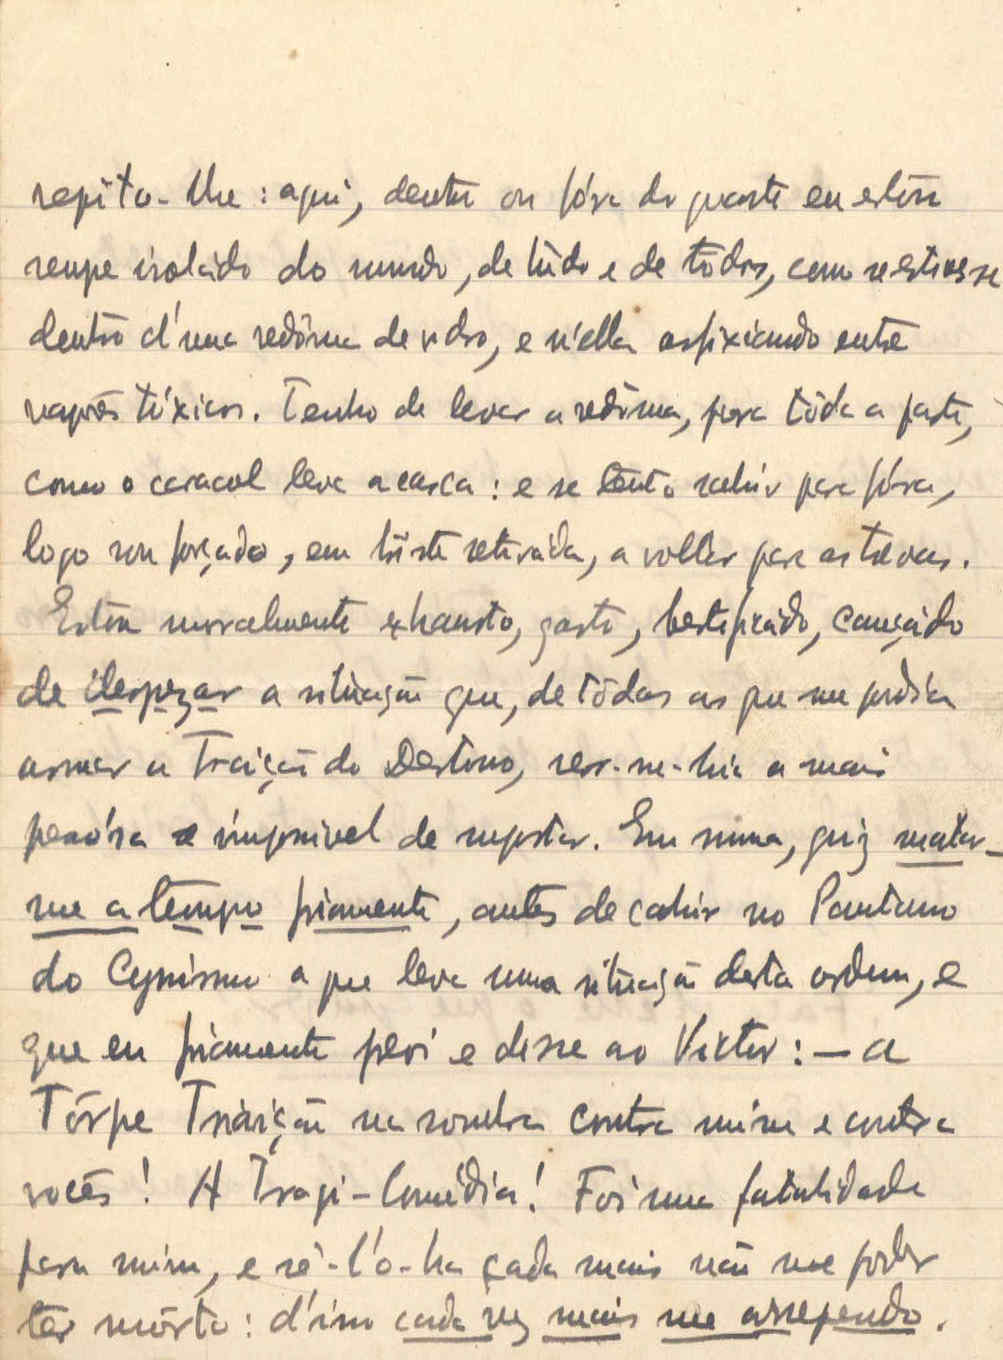 repito-lhe: aqui, dentro ou fóra do quarto eu estou
sempre isoládo do mundo, de túdo e de tôdos, como se estivesse
dentro d'uma redôma de vidro, e n'ella asfixiando entre
vapôres tóxicos. Tenho de levar a redôma, para tôda a parte,
como o caracol leva a casca: e se tento sahir para fóra,
logo sou forçado, em triste retiráda, a voltar para as trevas.
Estou moralmente exhausto, gasto, bestificádo, cançádo
de despezar a situação que, de tôdas as que me podia
armar a Traição do Destino, ser-me-hia a mais
penósa e impossivel de suportar. Em suma, quiz matar-
me a tempo friamente, antes de cahir no Pantano
do Cynismo a que leva uma situação desta ordem, e
que eu friamente previ e disse ao Victor: — a
Tôrpe Traição na sombra contra mim e contra
vocês! A Tragi-Comédia! Foi uma fatalidade
para mim, e sê-l'o-ha cada mais não me poder
ter môrto: d'isso cada vez mais me arrependo.